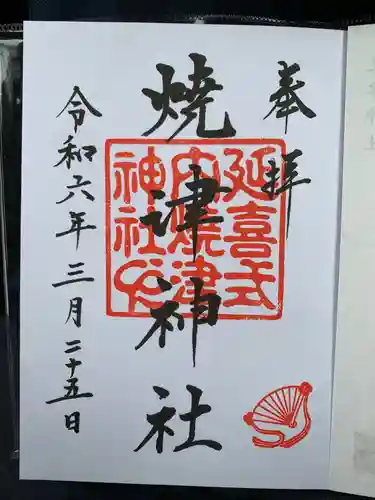 奉拝
焼津神社
延喜式
内焼津
神社
令和六年三月二十五日